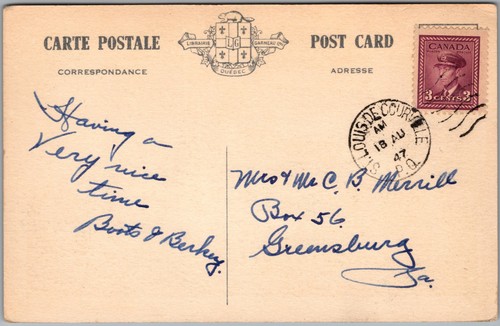 CARTE POSTALE
CORRESPONDANCE
LIBRAIRIE GARNEAU
QUÉBEC
POST CARD
ADRESSE
CANADA
3 CENTS 3
ST. LOUIS-DE-COURVILLE
AM
18 AU
47
P.Q.
Having a
Very nice
time
Boots & Berkey.
Mrs & Mr C. B. Merrill
Box 56.
Greensburg